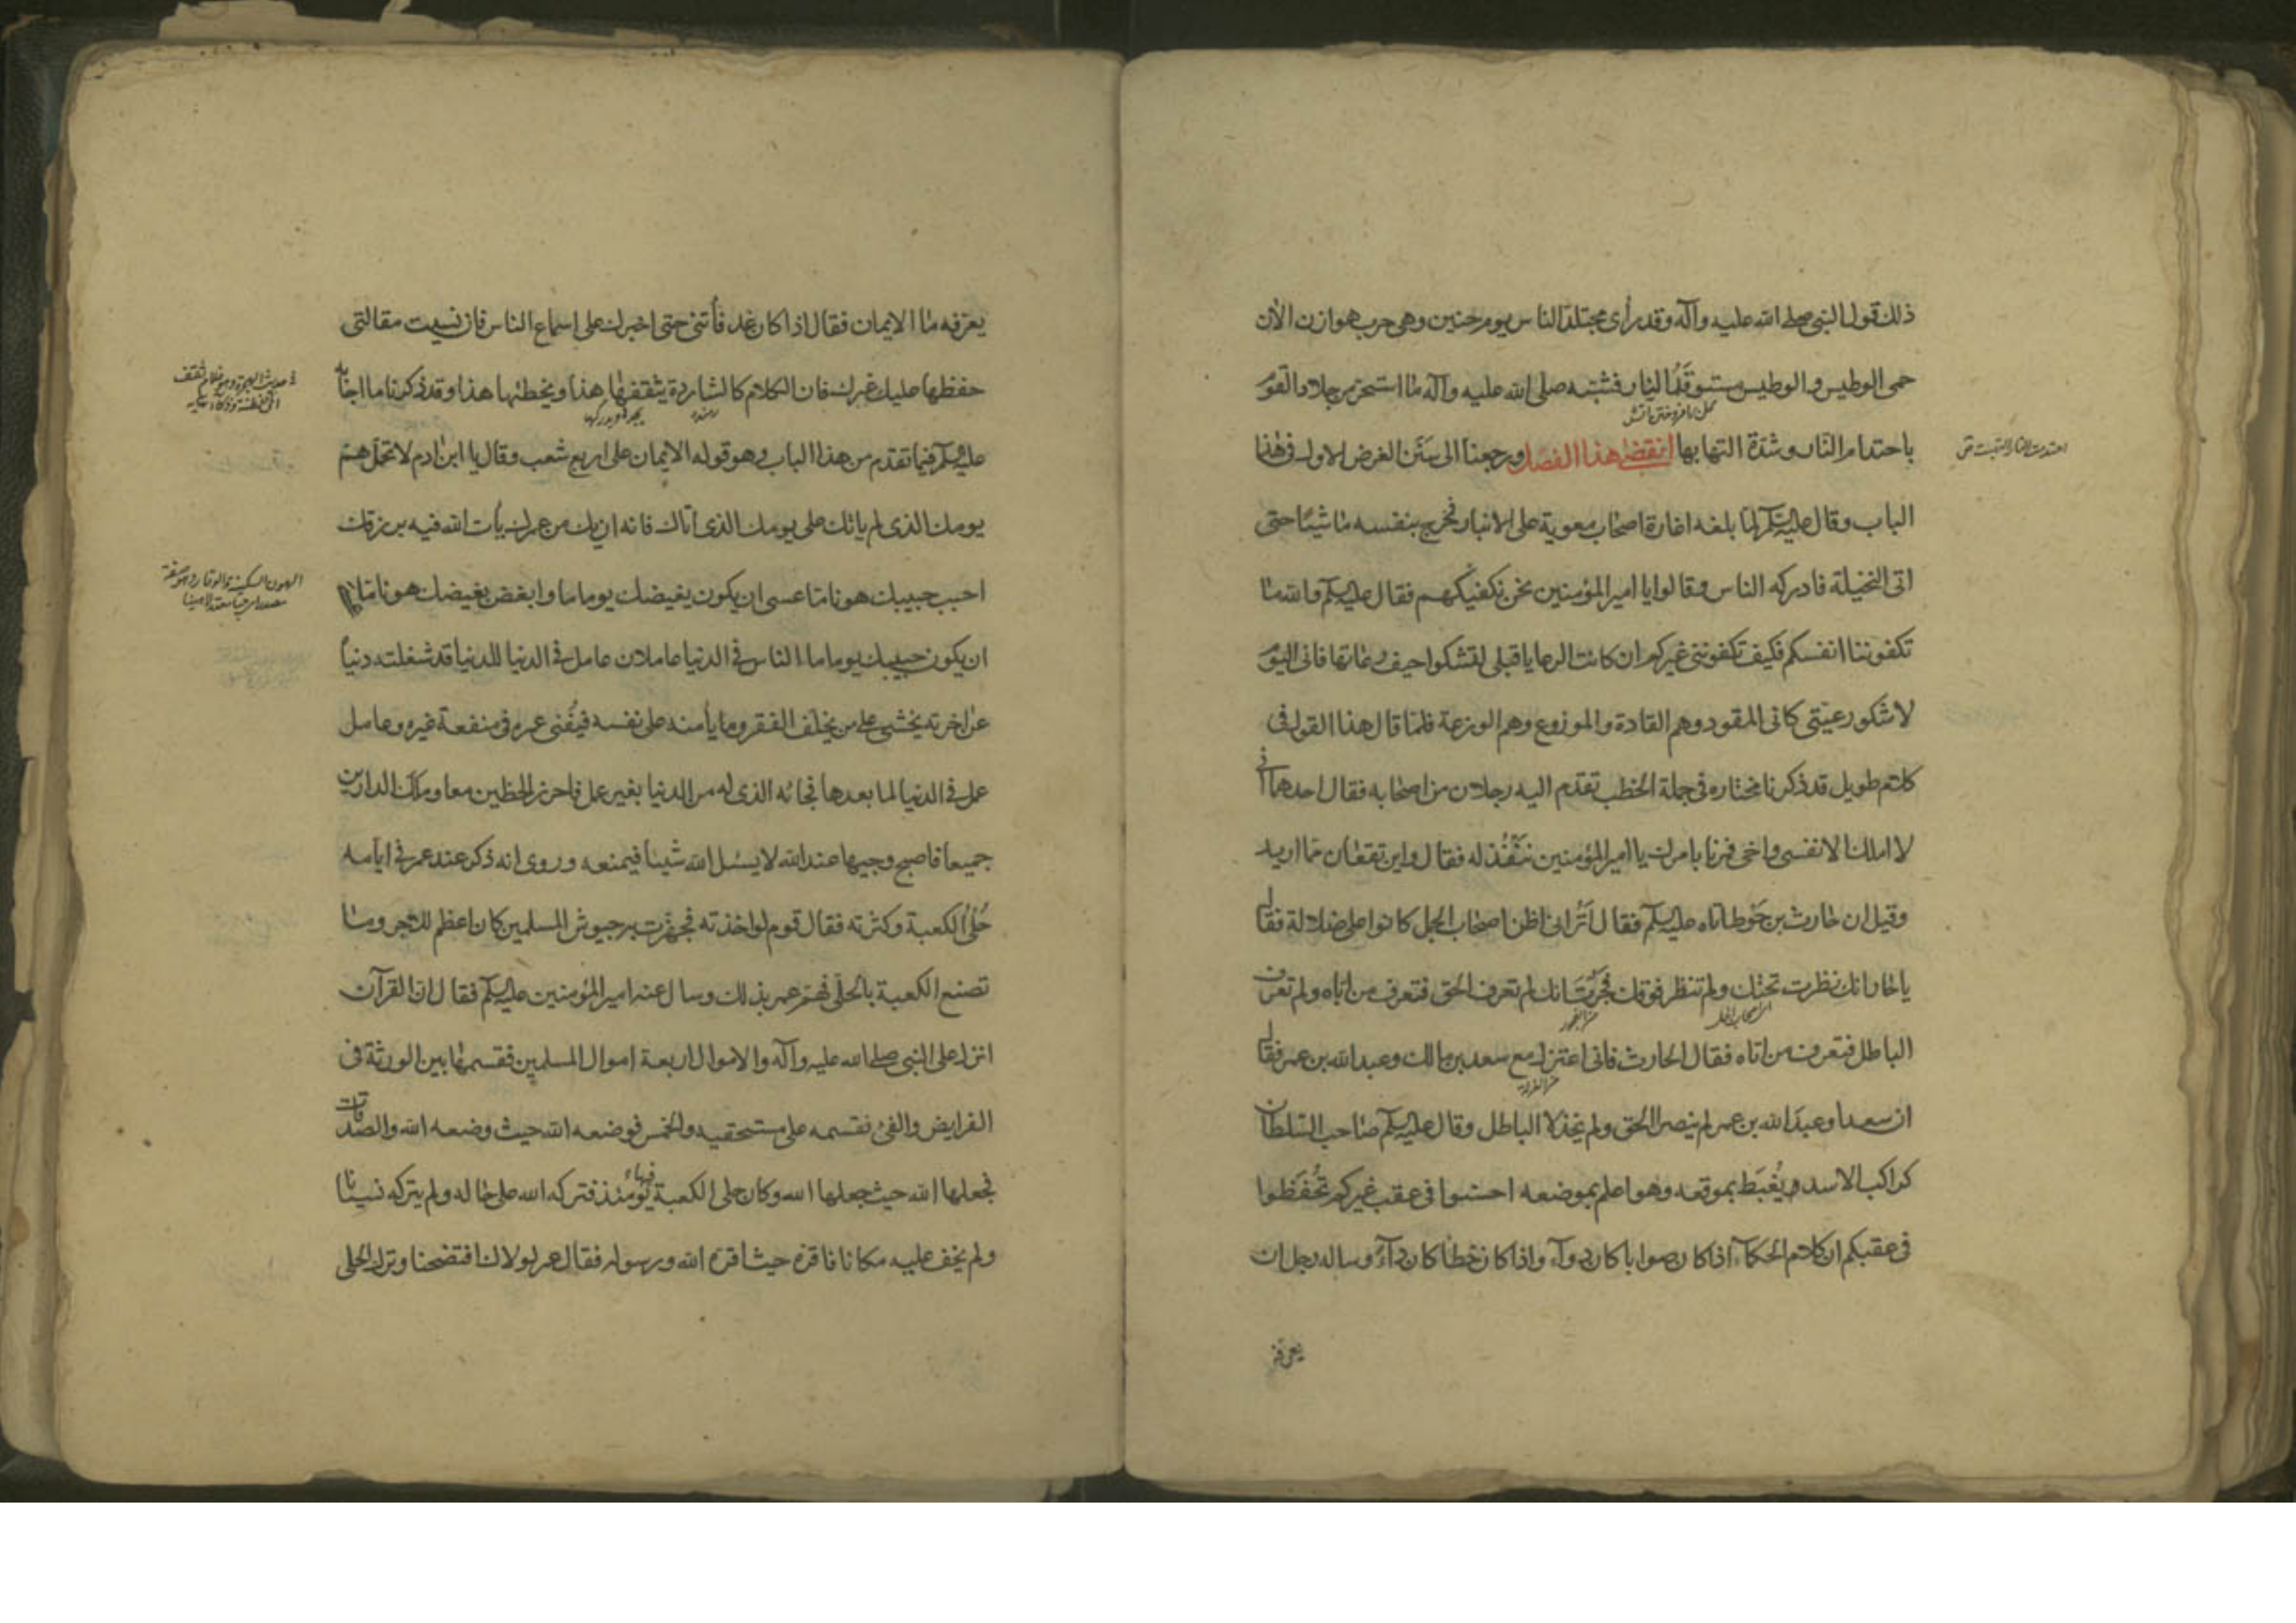 ذلك قول النبي صلى الله عليه وآله وقد رأى مجتلد الناس يوم حنين وهي حرب هوازن الآن
حمى الوطيس والوطيس مستوقد النار فشبه صلى الله عليه وآله ما استحر من جلاد القوم
باحتدام النار وشدة التهابها انقضى هذا الفصل ورجعنا الى سنن الغرض الاول في هذا
الباب وقال عليه السلم لما بلغه اغارة اصحاب معوية على الانبار فخرج بنفسه ماشيا حتى
اتى النخيلة فادركه الناس وقالوا يا امير المؤمنين نحن نكفيكهم فقال عليه السلم والله ما
تكفوننا انفسكم فكيف تكفونني غيركم ان كانت الرعايا قبلي لتشكوا حيف رعاتها فاني اليوم
لاشكو رعيتي كاني المقود وهم القادة والموزوع وهم الوزعة فلما قال هذا القول في
كلام طويل قد ذكرنا مختاره في جملة الخطب تقدم اليه رجلان من اصحابه فقال احدهما اني
لا املك الا نفسي واخي فمرنا بامرك يا امير المؤمنين ننفذ له فقال واين تقعان مما اريد
وقيل ان حارث بن حوط اتاه عليه السلم فقال أتراني اظن اصحاب الجمل كانوا على ضلالة فقال
يا حار انك نظرت تحتك ولم تنظر فوقك فحرت انك لم تعرف الحق فتعرف من اتاه ولم تعرف
اى اصحاب الجمل
الباطل فتعرف من اتاه فقال الحارث فاني اعتزل مع سعد بن مالك وعبد الله بن عمر فقال
ان سعدا وعبد الله بن عمر لم ينصرا الحق ولم يخذلا الباطل وقال عليه السلم صاحب السلطان
كراكب الاسد يغبط بموقعه وهو اعلم بموضعه احسنوا في عقب غيركم تحفظوا
في عقبكم ان كلام الحكماء اذا كان صوابا كان دواء واذا كان خطأ كان داء وساله رجل ان
يعرفه
احتدمت النار التهبت ق
يعرفه ما الايمان فقال اذا كان غد فأتني حتى اخبرك على اسماع الناس فان نسيت مقالتي
حفظها عليك غيرك فان الكلام كالشاردة يثقفها هذا ويخطئها هذا وقد ذكرنا ما اجابه
رمنده
عليه السلم فيما تقدم من هذا الباب وهو قوله الايمان على اربع شعب وقال يا ابن ادم لا تحمل هم
يومك الذي لم ياتك على يومك الذي اتاك فانه ان يك من عمرك يأت الله فيه برزقك
احبب حبيبك هونا ما عسى ان يكون بغيضك يوما ما وابغض بغيضك هونا ما
ان يكون حبيبك يوما ما الناس في الدنيا عاملان عامل في الدنيا للدنيا قد شغلته دنياه
عن اخرته يخشى على من يخلف الفقر ويأمنه على نفسه فيفنى عمره في منفعة غيره وعامل
عمل في الدنيا لما بعدها فجائه الذي له من الدنيا بغير عمل فاحرز الحظين معا وملك الدارين
جميعا فاصبح وجيها عند الله لا يسئل الله شيئا فيمنعه وروى انه ذكر عند عمر في ايامه
حلى الكعبة وكثرته فقال قوم لو اخذته فجهزت به جيوش المسلمين كان اعظم للاجر وما
تصنع الكعبة بالحلى فهم عمر بذلك وسال عنه امير المؤمنين عليه السلم فقال ان القرآن
انزل على النبي صلى الله عليه وآله والاموال اربعة اموال المسلمين فقسمها بين الورثة في
الفرايض والفئ فقسمه على مستحقيه والخمس فوضعه الله حيث وضعه الله والصدقات
فجعلها الله حيث جعلها الله وكان حلى الكعبة فيها يومئذ فتركه الله على حاله ولم يتركه نسيانا
ولم يخف عليه مكانا فاقره حيث اقره الله ورسوله فقال عمر لولاك لافتضحنا وترك الحلى